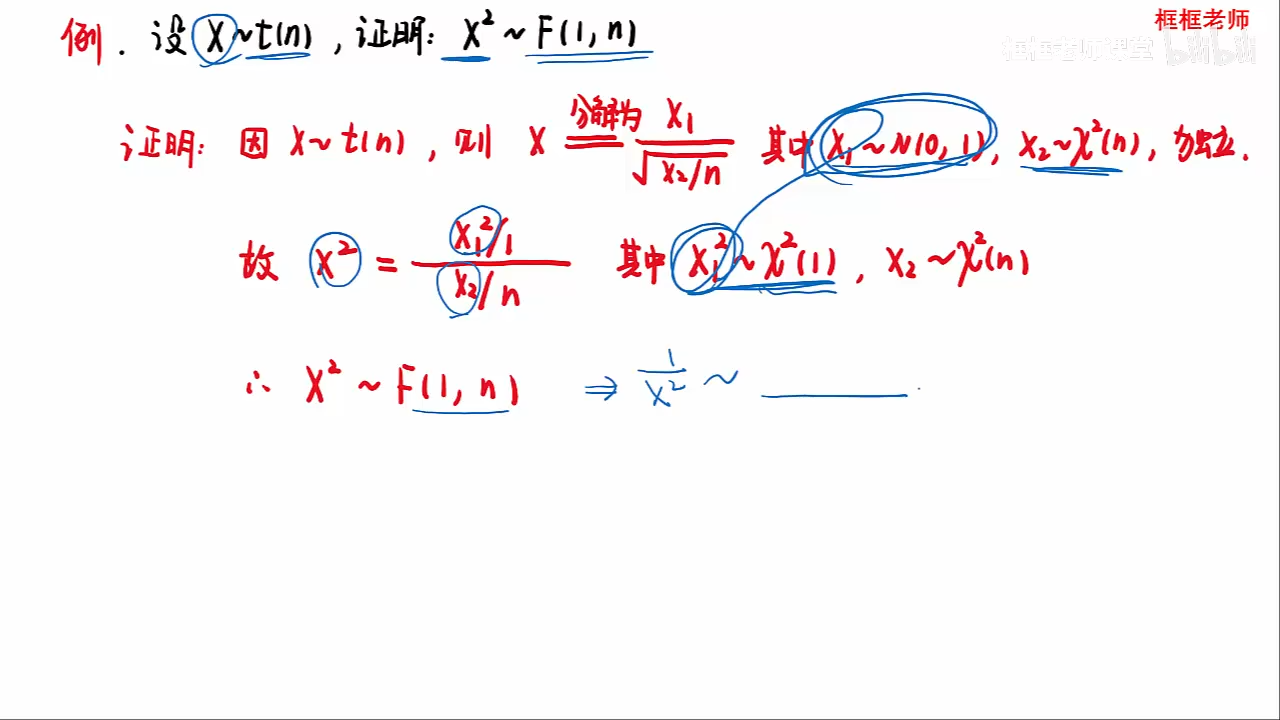 框框老师
框框老师课堂 bilibili
例. 设 X~t(n), 证明: X² ~ F(1, n)
证明: 因 X~t(n), 则 X 分解为 X₁ / √(X₂/n) 其中 X₁~N(0, 1), X₂~χ²(n), 为独立.
故 X² = (X₁²/1) / (X₂/n) 其中 X₁²~χ²(1), X₂~χ²(n)
∴ X² ~ F(1, n) ⇒ 1/X² ~ ______